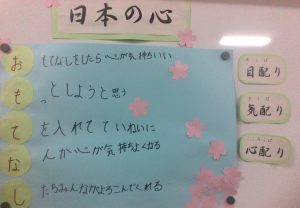 日本の心
おもてなしをしたら心が気持ちいい
もっとしようと思う
てを入れてていねいに
なんか心が気持ちよくなる
したらみんながよろこんでくれる
めくば
目配り
きくば
気配り
こころくば
心配り